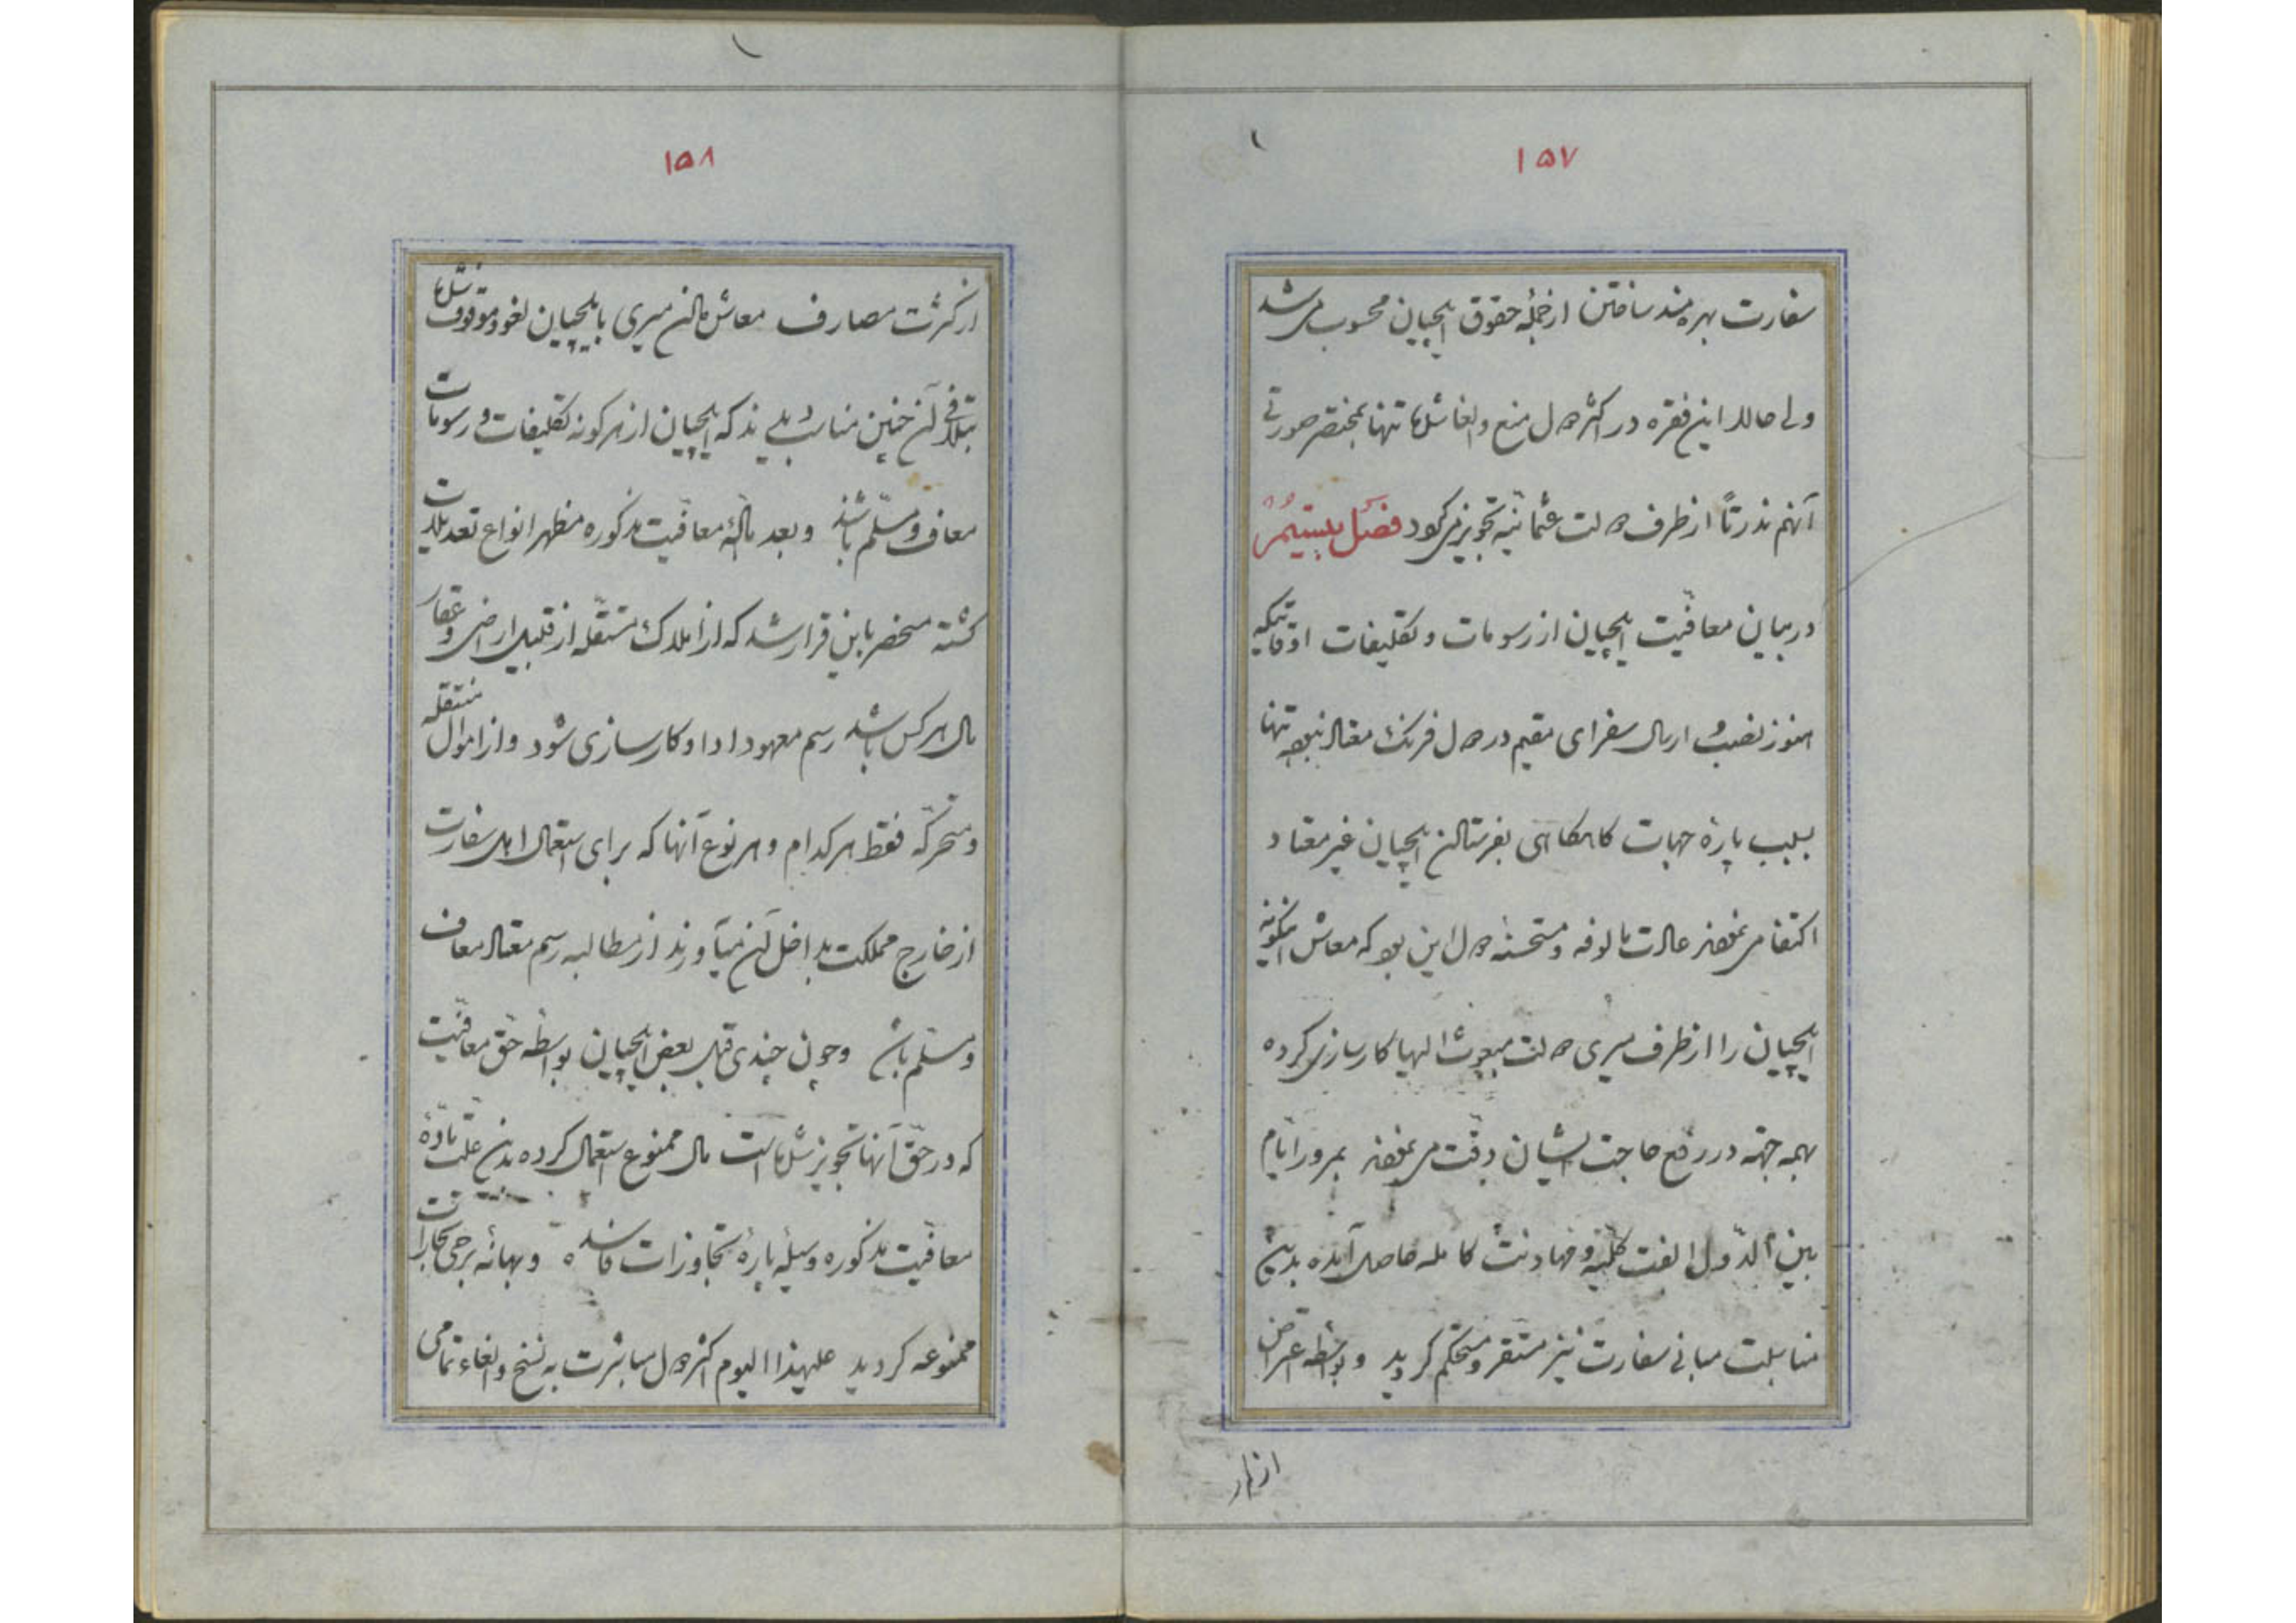 ۱۵۷
سفارت بهره‌مند ساختن از جمله حقوق ایلچیان محسوب می‌شد
ولی حالا این فقره در اکثر دول منع و الغا شده تنها بمختصر صورتی
آنهم ندرتاً از طرف دولت عثمانیه تجویز می‌گردد فصل بیستم
در بیان معافیت ایلچیان از رسومات و تکلیفات اوقاتیکه
هنوز نصب و ارسال سفرای مقیم در دول فرنگ معتاد نبود تنها
بسبب پارهٔ جهات گاهگاهی بفرستادن ایلچیان غیر معتاد
اکتفا می‌نمودند عادت مالوفه و مستحسنه دول این بود که معاش اینگونه
ایلچیان را از طرف میری دولت مبعوث الیها کارسازی کرده
بهمه جهة در رفع حاجت ایشان دقت می‌نمودند بمرور ایام
بین الدول الفت کلیه و مهادنت کامله حاصل آمده بدین
مناسبت مبانی سفارت نیز مستقر و مستحکم گردید و بواسطه اعتراض
۱۵۸
از کثرت مصارف معاش دادن میری بایلچیان لغو و موقوف شد
بتلافی آن چنین مناسب دیدند که ایلچیان از هرگونه تکلیفات و رسومات
معاف و مسلم باشند و بعد مادهٔ معافیت مذکوره مظهر انواع تعدیلات
گشته منحصر باین قرار شد که از املاک مستقله از قبیل اراضی و عقار
مال هر کس باشد رسم معهود ادا و کارسازی شود و از اموال منتقله
و متحرکه فقط هر کدام و هر نوع آنها که برای استعمال اهل سفارت
از خارج مملکت بداخل آن میآورند از مطالبه رسم معتاد معاف
و مسلم باشد و چون چندی قبل بعض ایلچیان بواسطه حق معافیت
که در حق آنها تجویز شده است مال ممنوع استعمال کرده بدین علت مادهٔ
معافیت مذکوره وسیلهٔ پارهٔ تجاوزات فاسده و بهانهٔ برخی تجارات
ممنوعه گردید علیهذا الیوم اکثر دول مباشرت به نسخ و الغاء تمامی